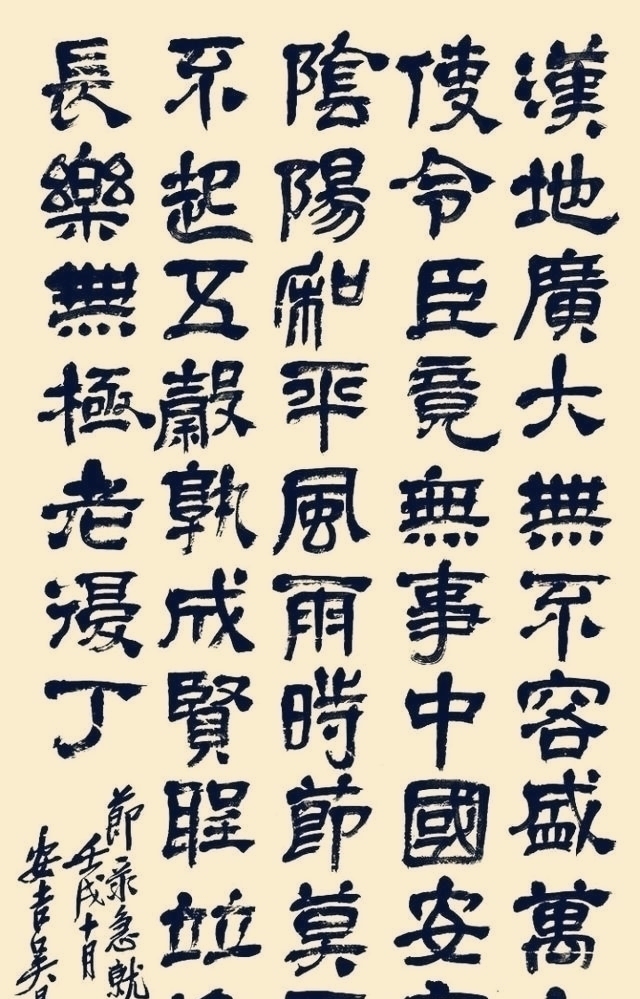 漢地廣大無不容盛萬
使令臣竟無事中國安
陰陽和平風雨時節莫
不起五穀孰成賢聖竝
長樂無極老復丁
節录急就
壬戌十月
安吉吴